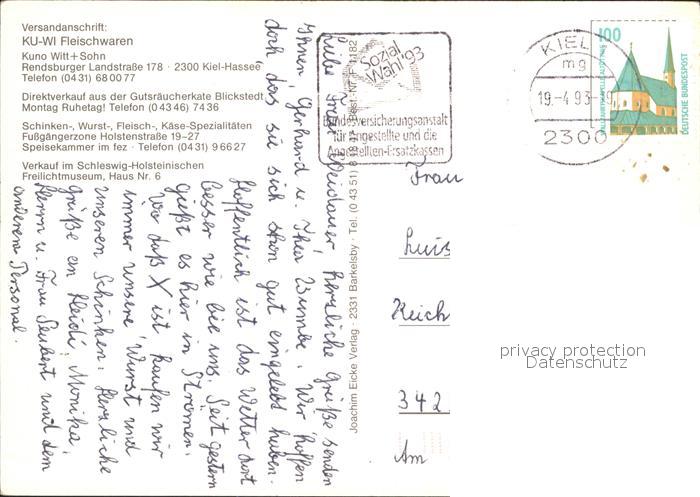 Versandanschrift:
KU-WI Fleischwaren
Kuno Witt+Sohn
Rendsburger Landstraße 178 · 2300 Kiel-Hassee
Telefon (04 31) 68 00 77
Direktverkauf aus der Gutsräucherkate Blickstedt
Montag Ruhetag! Telefon (0 43 46) 74 36
Schinken-, Wurst-, Fleisch-, Käse-Spezialitäten
Fußgängerzone Holstenstraße 19–27
Speisekammer im fez · Telefon (04 31) 9 66 27
Verkauf im Schleswig-Holsteinischen
Freilichtmuseum, Haus Nr. 6
Liebe Frau herzliche Grüße senden
Ihnen Gerhard u. Thea Wir hoffen
doch, das sie sich schon gut eingelebt haben.
Hoffentlich ist das Wetter dort
besser wie bei uns. Seit gestern
gießt es hier in Strömen.
Wo das X ist kaufen wir
immer unsere Wurst und
unseren Schinken. Herzliche
Grüße an Heidi, Monika,
Herrn u. Frau Seubert und dem
anderen Personal.
Joachim Eicke Verlag · 2331 Barkelsby · Tel. (0 43 51)
Sozial
Wahl '93
Bundesversicherungsanstalt
für Angestellte und die
Angestellten-Ersatzkassen
KIEL
mg
19.-4.93-19
2300
100
DEUTSCHE BUNDESPOST
Frau
Luis
Reich
342
Am
privacy protection
Datenschutz